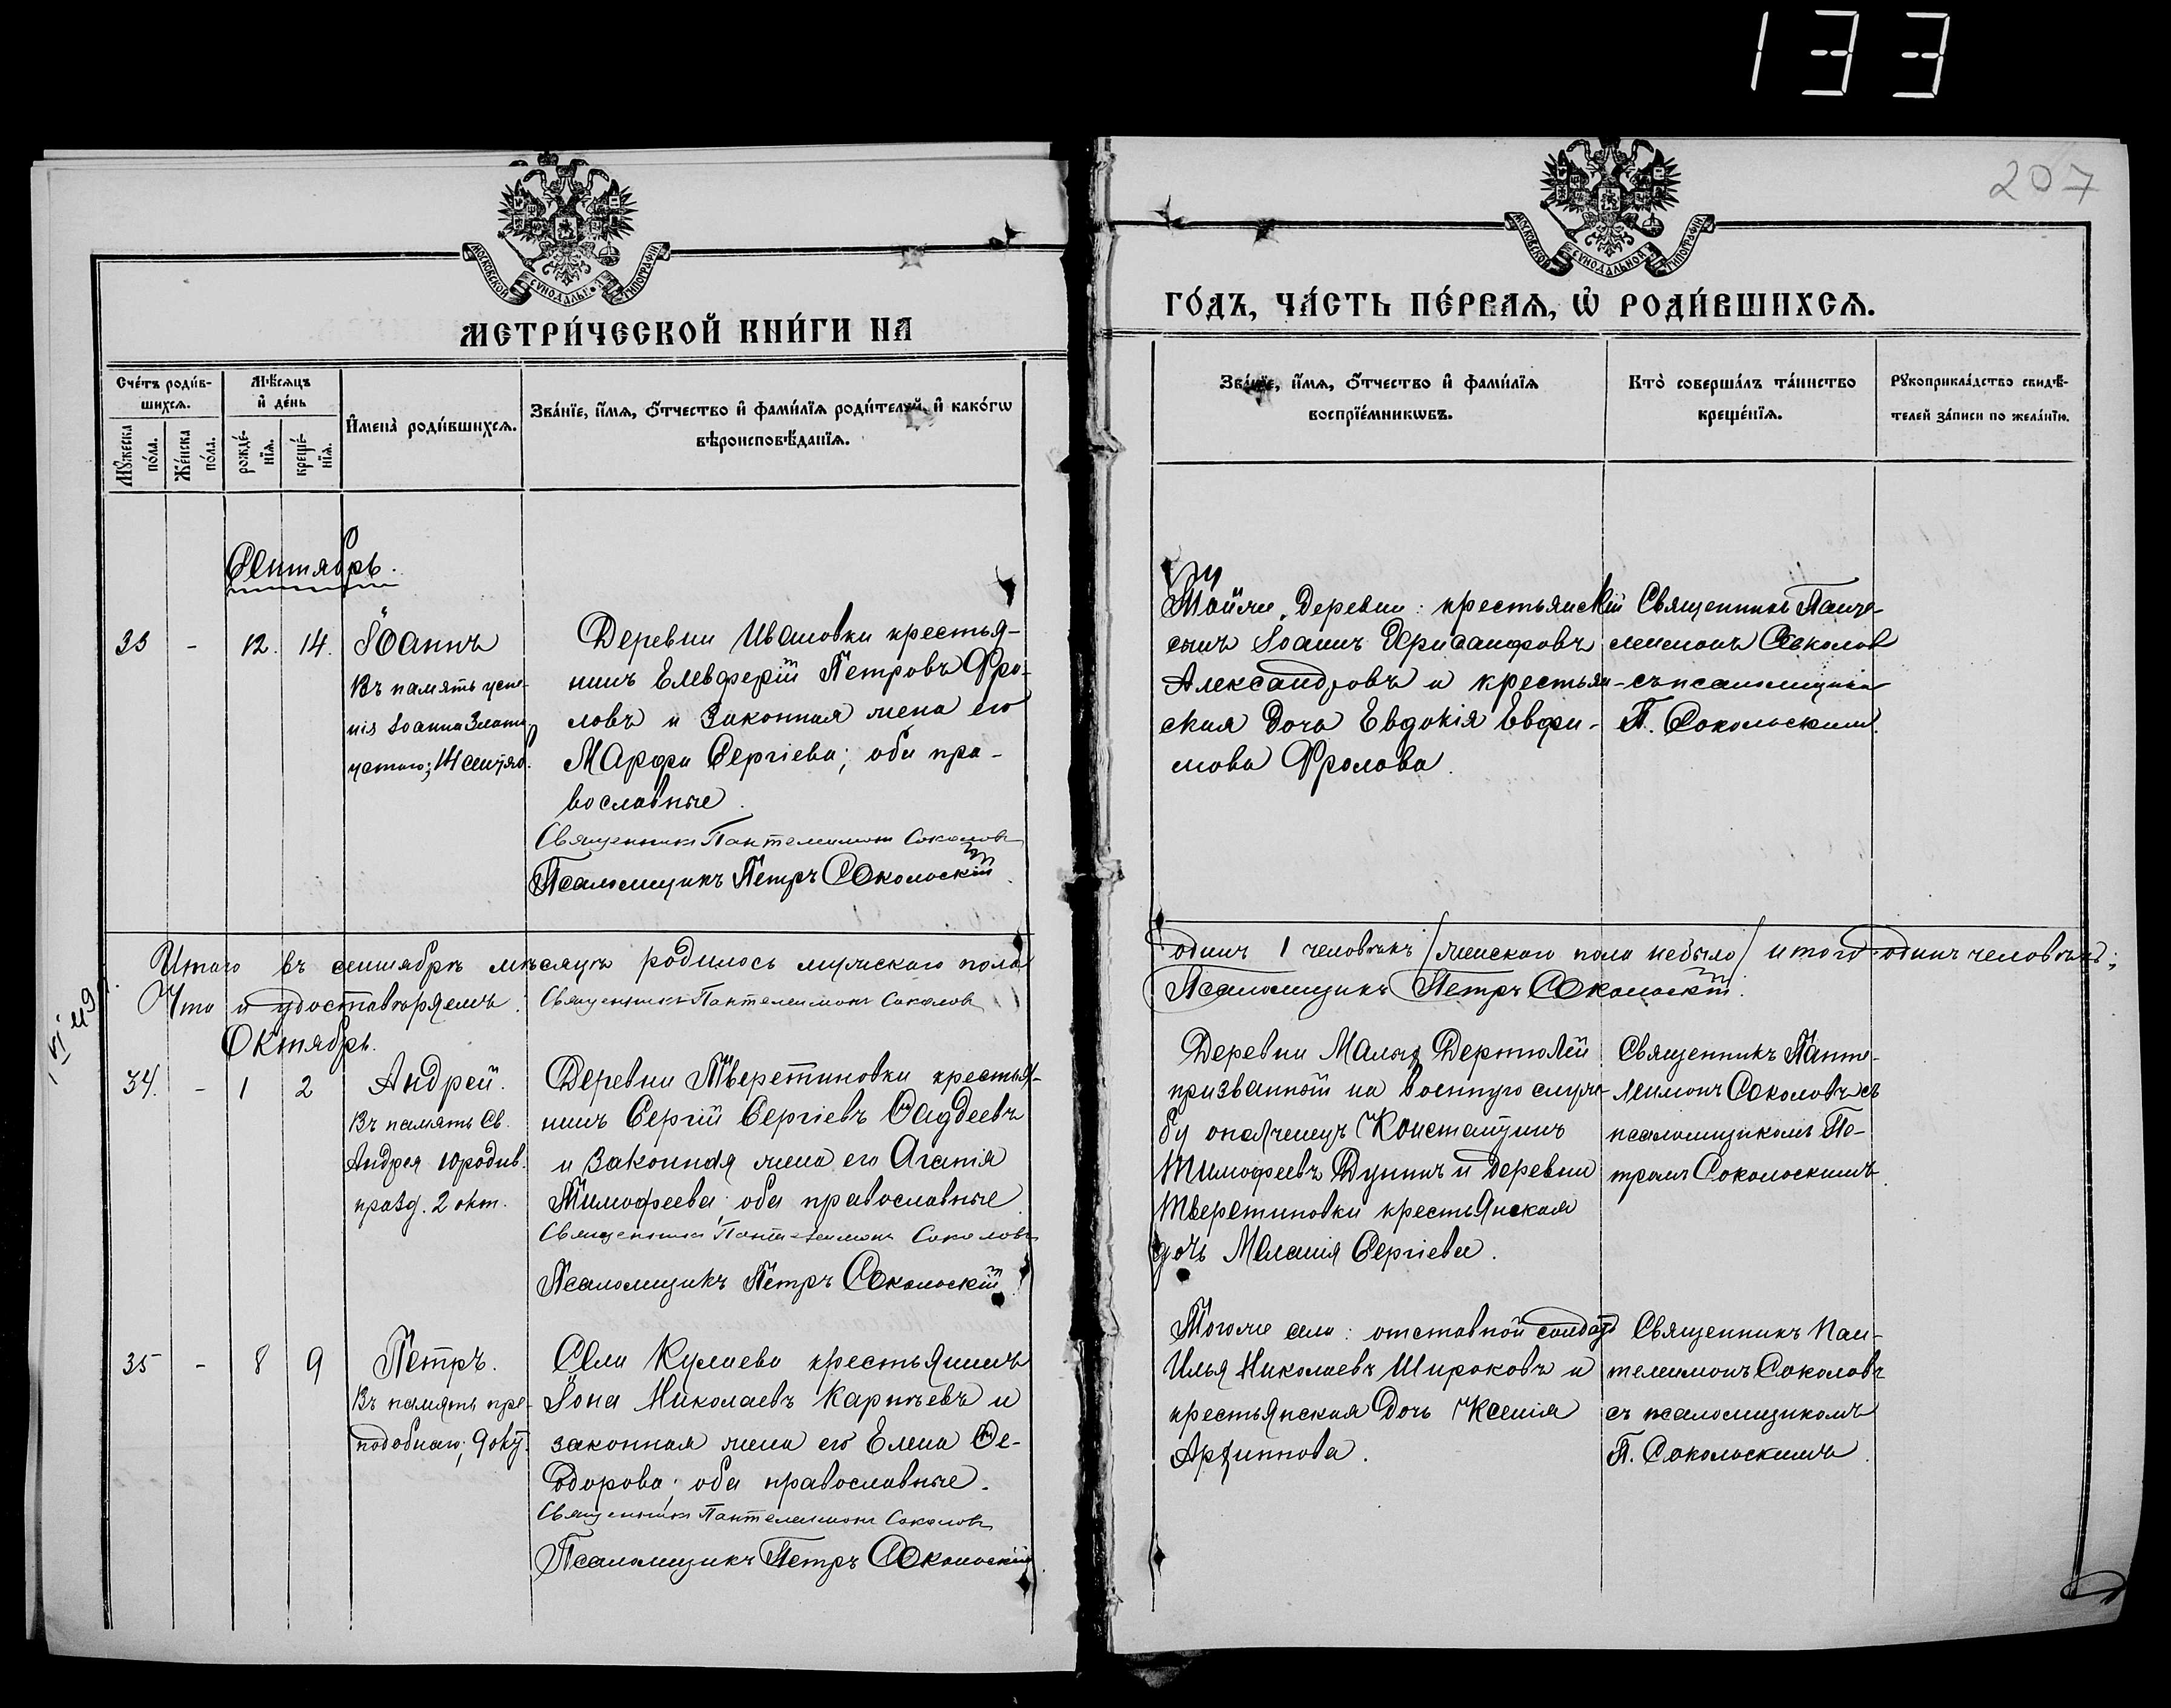 133
207
МОСКОВСКОЙ СѴНОДАЛЬНОЙ ТИПОГРАФІИ
МОСКОВСКОЙ СѴНОДАЛЬНОЙ ТИПОГРАФІИ
МЕТРИ́ЧЕСКОЙ КНИ́ГИ НА
ГО́ДЪ, ЧА́СТЬ ПЕ́РВАЯ, Ѡ РОДИ́ВШИХСЯ.
Сче́тъ роди́в-
шихся.
Мѣ́сяцъ
и де́нь
Му́жеска
по́ла.
Же́нска
по́ла.
рожде́-
нїя.
креще́-
нїя.
Имена̀ роди́вшихся.
Зва́нїе, и́мя, о́тчество и фами́лїя роди́телей, и како́гѡ
вѣроисповѣ́данїя.
Зва́нїе, и́мя, о́тчество и фами́лїя
воспрїе́мникѡвъ.
Кто̀ соверша́лъ та́инство
креще́нїя.
Рꙋкоприкла́дство свидѣ́-
телей за́писи по жела́нїю.
Сентябрь.
33 - 12. 14.
Іоаннъ
Въ память успе-
нія Іоанна Злато
устаго; 14 сентяб.
Деревни Ивановки крестья-
нинъ Елевферій Петровъ Фро-
ловъ и законная жена его
Марфа Сергіева; оба пра-
вославные.
Священникъ Пантелеимонъ Соколовъ
Псаломщикъ Петръ Сокольскій.
Той же деревни: крестьянскій
сынъ Іоаннъ Хрисанфовъ
Александровъ и крестьян-
ская дочь Евдокія Евфи-
мова Фролова.
Священникъ Панте-
леимонъ Соколовъ
съ псаломщикомъ
П. Сокольскимъ.
Итого въ сентябрѣ мѣсяцѣ родилось мужскаго пола
одинъ 1 человѣкъ /женскаго пола небыло/ итого одинъ человѣкъ;
Что и удостовѣряемъ. Священникъ Пантелеимонъ Соколовъ
Псаломщикъ Петръ Сокольскій.
Октябрь.
34. - 1 2
Андрей.
Въ память Св.
Андрея юродив.
празд. 2 окт.
Деревни Тверетиновки крестья-
нинъ Сергій Сергіевъ Фаддеевъ
и законная жена его Агапія
Тимофеева; оба православные
Священникъ Пантелеимонъ Соколовъ
Псаломщикъ Петръ Сокольскій.
Деревни Малыя
призванный на военную служ-
бу ополченецъ Константинъ
Тимофеевъ Дунинъ и деревни
Тверетиновки крестьянская
дочь Меланія Сергіева.
Священникъ Панте-
леимонъ Соколовъ съ
псаломщикомъ Пе-
тромъ Сокольскимъ.
35 - 8 9
Петръ.
Въ память пре-
подобнаго; 9 окт.
Села Кулаева крестьянинъ
Іона Николаевъ Карпѣевъ и
законная жена его Елена Фе-
одорова; оба православные.
Священникъ Пантелеимонъ Соколовъ
Псаломщикъ Петръ Сокольскій
Того же села: отставной солдатъ
Илья Николаевъ Широковъ и
крестьянская дочь Ксенія
Архиппова.
Священникъ Пан-
телеимонъ Соколовъ
съ псаломщикомъ
П. Сокольскимъ.